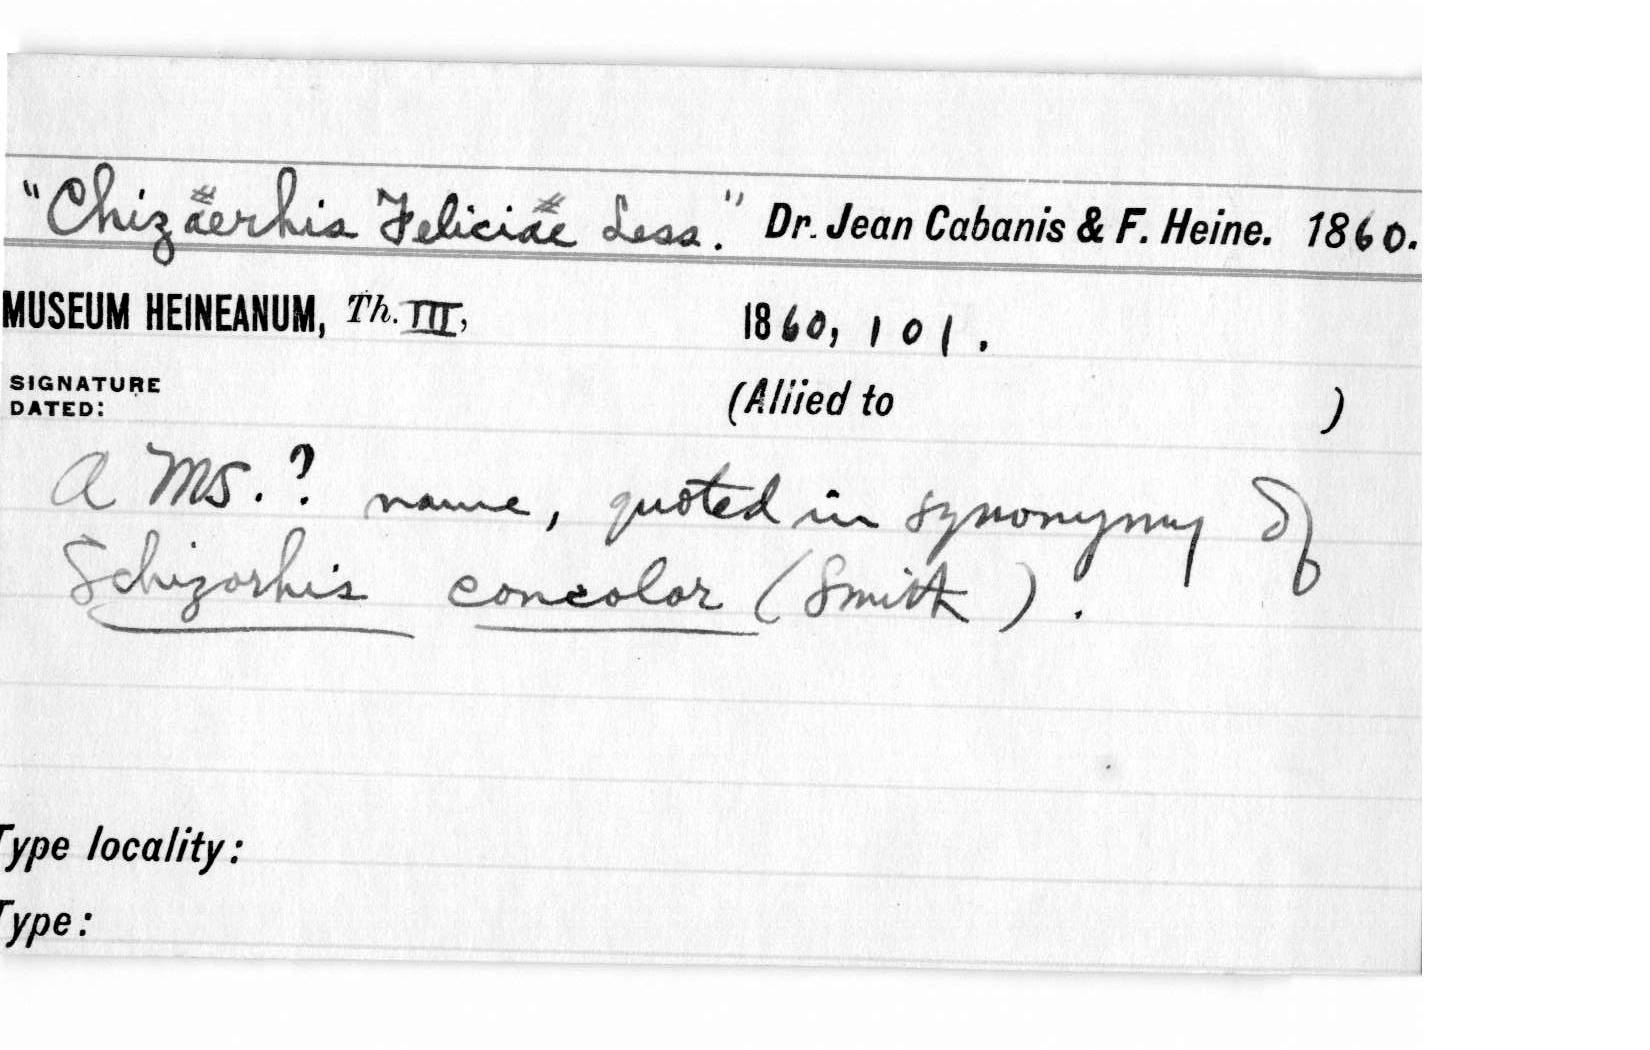 "Chizaerhis Feliciae Less." Dr. Jean Cabanis & F. Heine. 1860.
MUSEUM HEINEANUM, Th. III, 1860, 101.
SIGNATURE
DATED:
(Allied to )
A MS.? name, quoted in synonymy of
Schizorhis concolor (Smith).
Type locality:
Type: